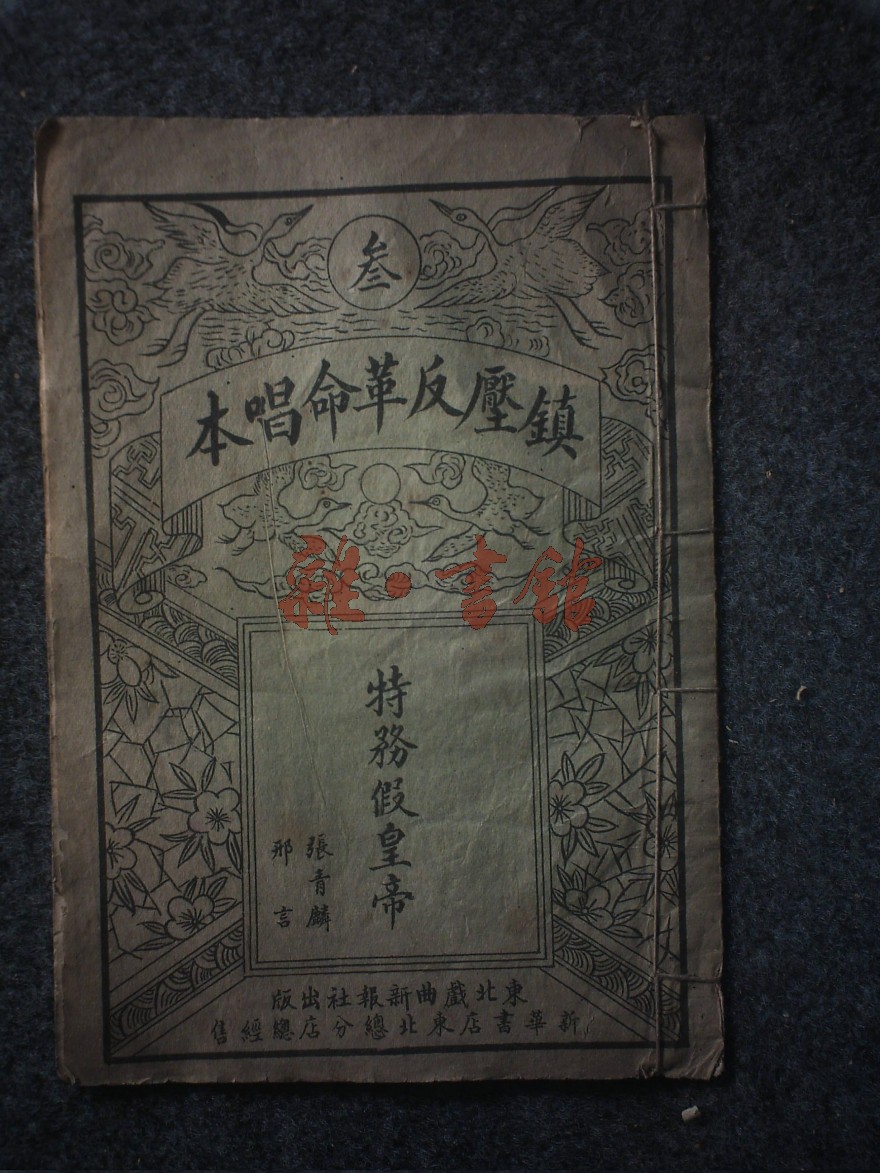 叁
鎮壓反革命唱本
雜·書館
特務假皇帝
張青麟
邢言
東北戲曲新報社出版
新華書店東北總分店總經售